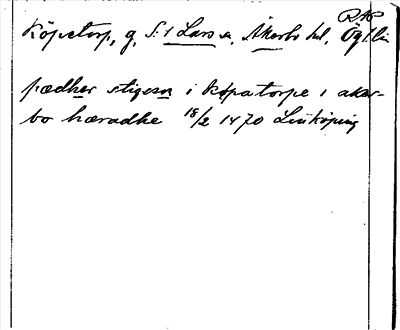 RAP
Köpetorp, g, S:t Lars sn, Åkerbo hd, Ög. l.
pædher stigson i køpatorpe i aker-
bo hæradhe 18/2 1470 Linköping